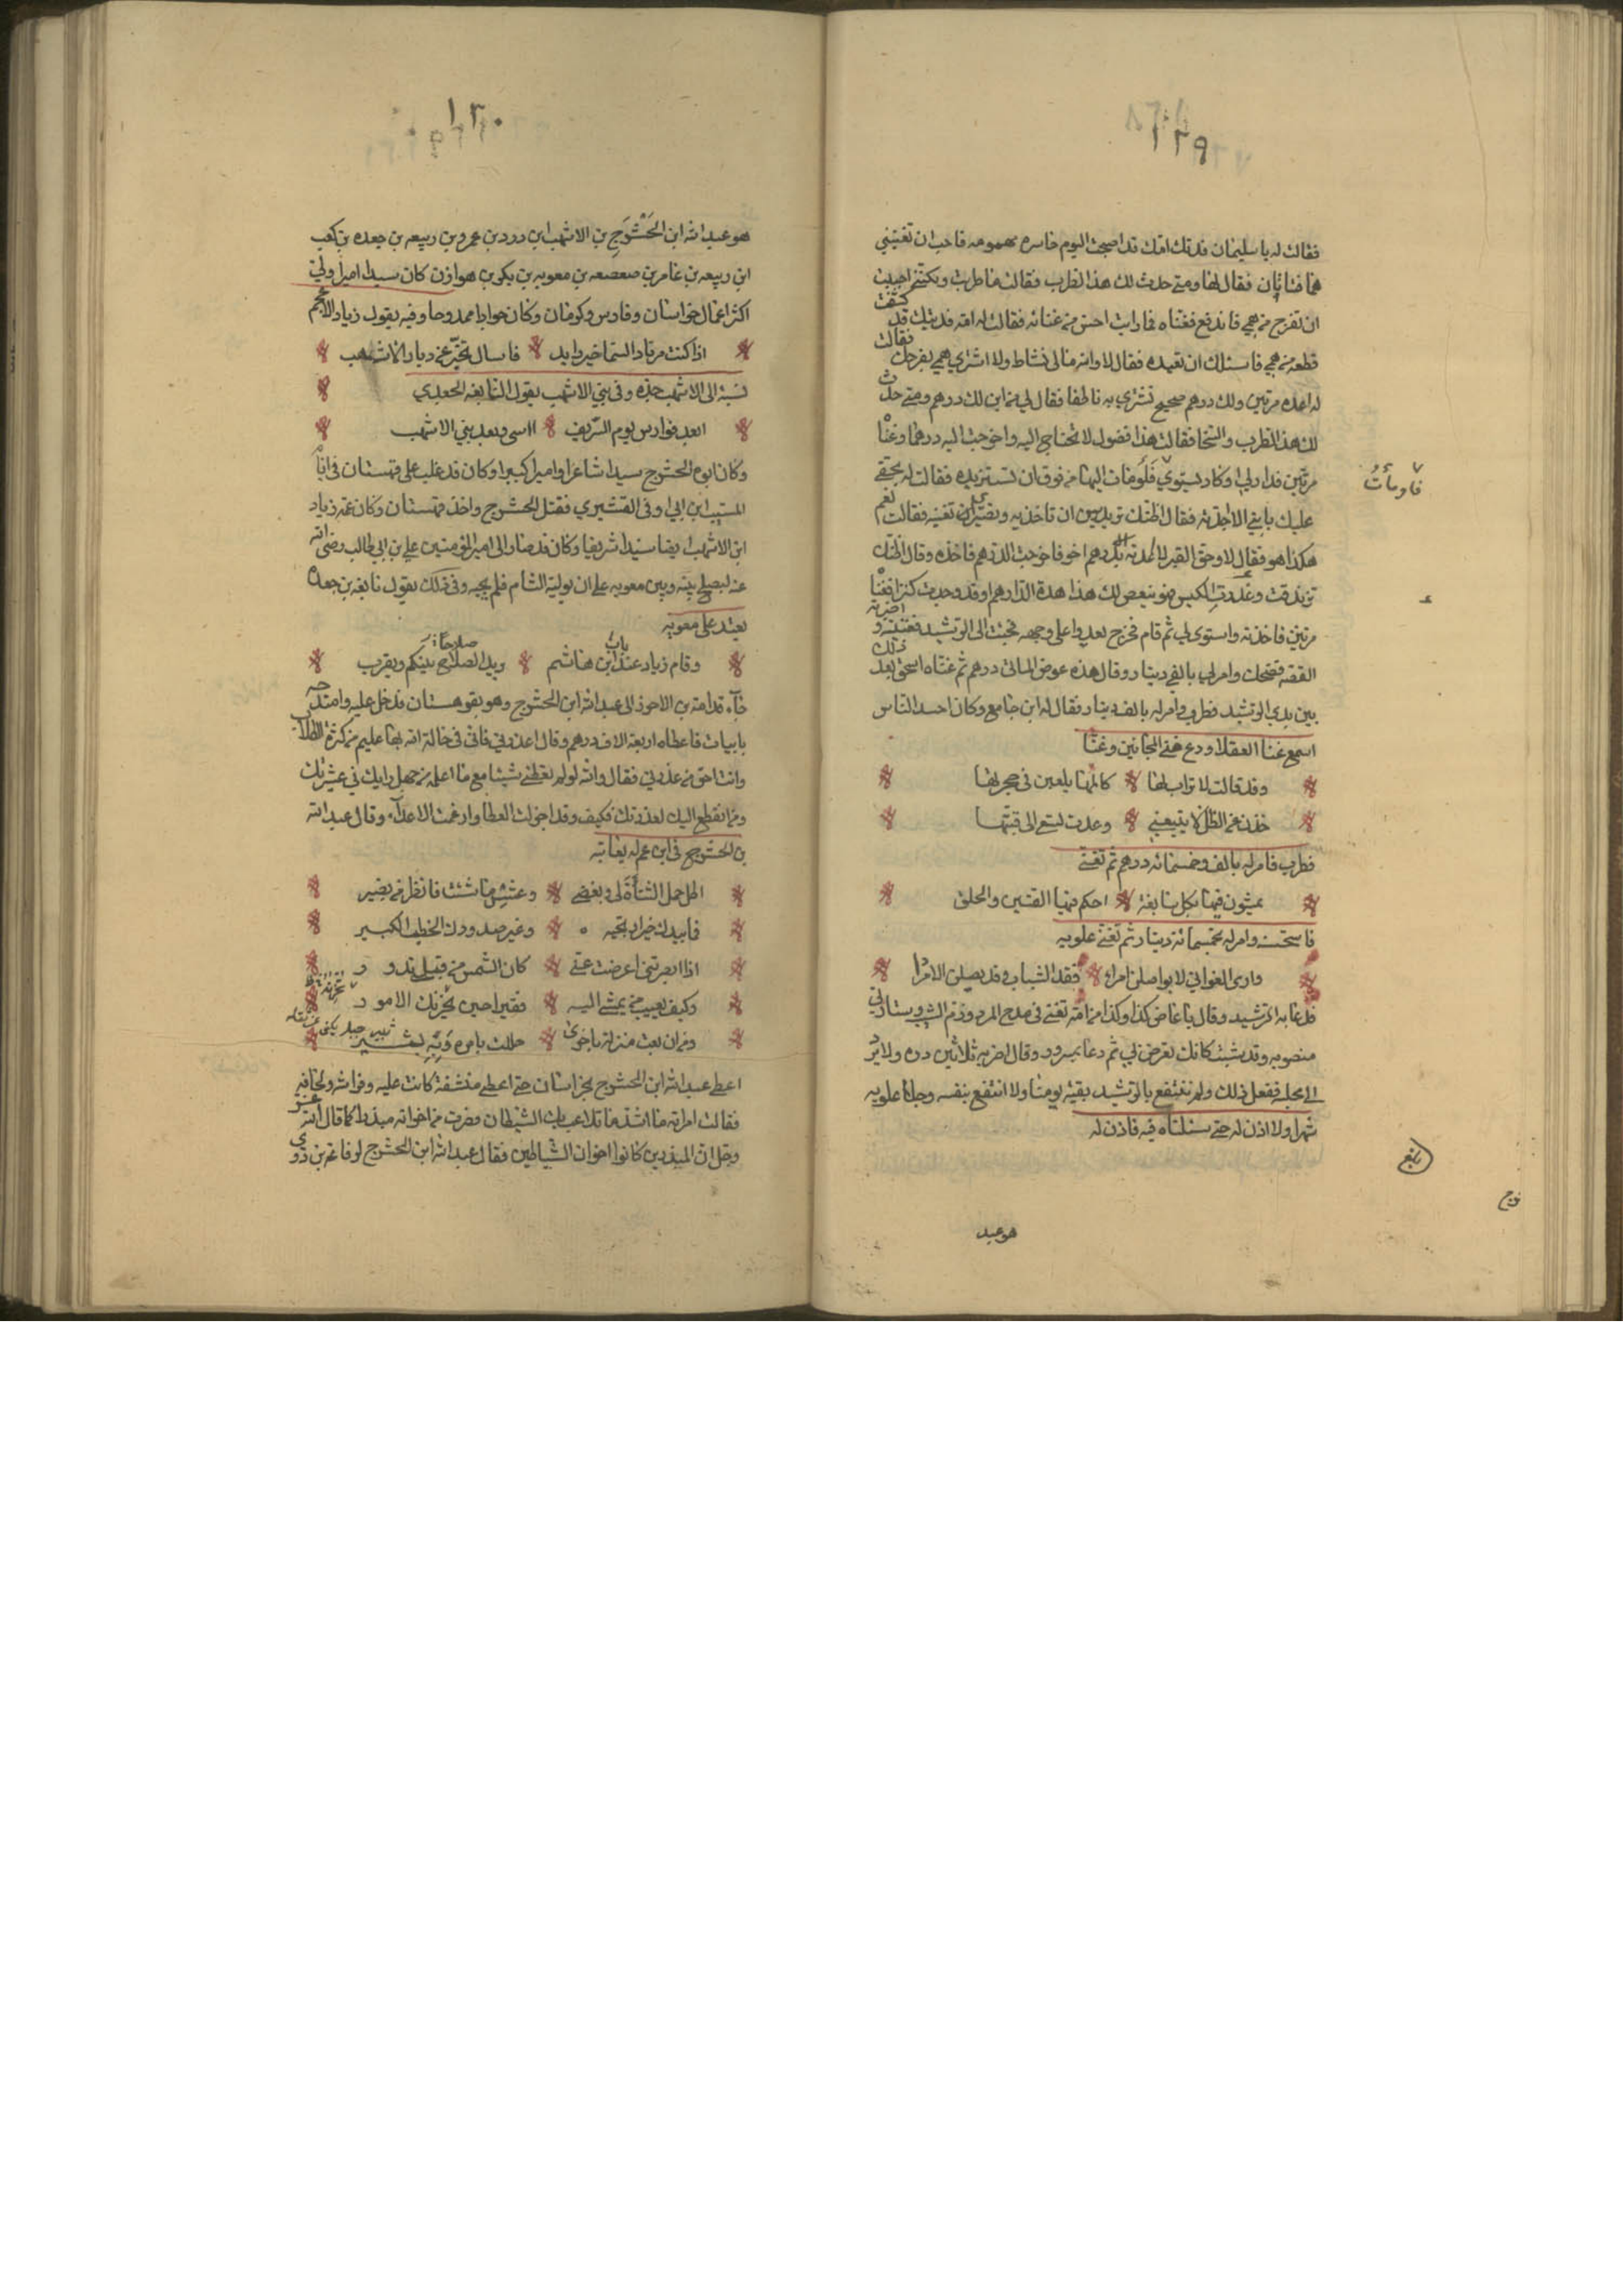 ١٢٩
فقالت له يا سليمان فدتك امك قد اصبحت اليوم خاسره مهمومه فاحب ان تغنيني
فقال لها ومتى حدث لك هذا الطرب فقالت ما طربت ولكنني احببت
ان تفرج من همي فاندفع فغناه فما رايت احسن من غنائه فقالت له امه فديتك قد كشفت
قطعه من همي فاسئلك ان تعيده فقال لا والله ما لى نشاط ولا اشتري همي بفرحك فقالت
له اعده مرتين ولك درهم صحيح تشتري به ناطفا فقال لي من اين لك درهم ومتى حدث
لك هذا الطرب والسخا فقالت هذا فضول لا تحتاج اليه واخرجت اليه درهما وغنا
مرتين فدار لي وكاد يستوي فاومات اليها من فوق ان تستزيده فقالت له بحقي
عليك يا بني الا اعدته فقال اظنك تريدين ان تاخذيه وتصيري تغنيه فقالت نعم
هكذا هو فقال لا وحق القبر لا اعدته الا بدرهم اخر فاخرجت الدرهم فاخذه وقال اظنك
الكبش هذا هذه الدراهم او قد وجدت كنزا فغناه
مرتين فاخذته واستوى لي ثم قام فخرج يعدوا على وجهه فجئت الى الرشيد فغنيته واخبرته
القصه فضحك وامر لي بالفي دينار وقال هذه عوض المائتي درهم ثم غناه اسحق بعد ذلك
بين يدي الرشيد فطرب وامر له بالف دينار فقال له ابن جامع وكان احسد الناس
اسمع غنا العقلا ودع غنى المجانين وغنا
وقد قالت لاتراب لها كالمها يلعبن في حجرتها
خذن عني الظل لا يتبعني وعدت تسعى الى قبتها
فطرب فامر له بالف وخمسمائه درهم ثم تغنى
يمشون فيها بكل سابغة احكم فيها القتير والحلق
فاستحسنه وامر له بخمسمائة دينار ثم تغنى علويه
وارى الغواني لا يواصلن امرا فقد الشباب وقد يصلن الامردا
فدعا به الرشيد وقال يا عاض كذا وكذا من امه تغنى في مدح المرد وذم الشيب وستارتي
منصوبه وقد شبت كانك تعرض لي ثم دعا بمسرور وقال اضربه ثلاثين دره ولا يرد
الى مجلسه ففعل ذلك ولم ننتفع بالرشيد بقية يومنا ولا انتفع بنفسه وجفا علويه
شهرا ولا اذن له حتى سئلناه فيه فاذن له
فاومأتُ
بلغ
هو عبد
١٣٠
هو عبد الله ابن الحَشْرَج بن الاشهب ابن ورد بن عمرو بن ربيعه بن جعده بن كعب
ابن ربيعه بن عامر بن صعصعه بن معويه بن بكر بن هوازن كان سيدا اميرا ولي
اكثر اعمال خراسان وفارس وكرمان وكان جوادا ممدوحا وفيه يقول زياد الاعجم
اذا كنت مرتاد السماحة فاسال تخبر عن ديار الاشهب
نسبة الى الاشهب جده وفى بني الاشهب يقول النابغه الجعدي
ابعد فوارس يوم الشريف ااسى وبعد بني الاشهب
وكان ابوه الحشرج سيدا شاعرا واميرا كبيرا وكان قد غلب على قهستان في ايام
المسيب ابن ابي اوفى القشيري فقتل الحشرج واخذ قهستان وكان عمه زياد
ابن الاشهب ايضا سيدا شريفا وكان قد صار الى امير المؤمنين علي بن ابي طالب رضى الله
عنه ليصلح بينه وبين معويه على ان يوليه الشام فلم يجبه وفى ذلك يقول نابغه بن جعده
يعتد على معويه
وقام زياد عند باب ابن هاشم يريد الصلاح بينكم ويقرب
صلاحا
جآء قدامة بن الاحرز الى عبد الله ابن الحشرج وهو بقوهستان فدخل عليه وامتدحه
بابيات فاعطاه اربعة الاف درهم وقال اعذرني فاني فى حالة الله بها عليم من كثرة الطلاب
وانت احق من عذرني فقال والله لو لم تعطني شيئا مع ما اعلمه من جميل رايك في عشيرتك
ومن انقطع اليك لعذرتك فكيف وقد اجزلت العطا وارغمت الاعدآء وقال عبد الله
بن الحشرج فى ابن عم له يعاتبه
اطل حمل الشنأة لي وبغضي وعش ما شئت فانظر من تضير
فما بيديك خير ارتجيه وغير صدودك الخطب الكبير
اذا ابصرتني اعرضت عني كان الشمس من قبلي تدور
وكيف تعيب من يمشي اليه فقيرا حين تحزنك الامور
ومن ان بعت منزلة باخرى حللت بامره وبه تسير
اعطى عبد الله ابن الحشرج بخراسان حتى اعطى منشفة كانت عليه وفراشه ولحافه
فقالت امراته ما اشد ما تلاعب بك الشيطان وصرت من اخوانه مبذرا كما قال الله عز
وجل ان المبذرين كانوا اخوان الشياطين فقال عبد الله ابن الحشرج لرفاعه بن ذوي